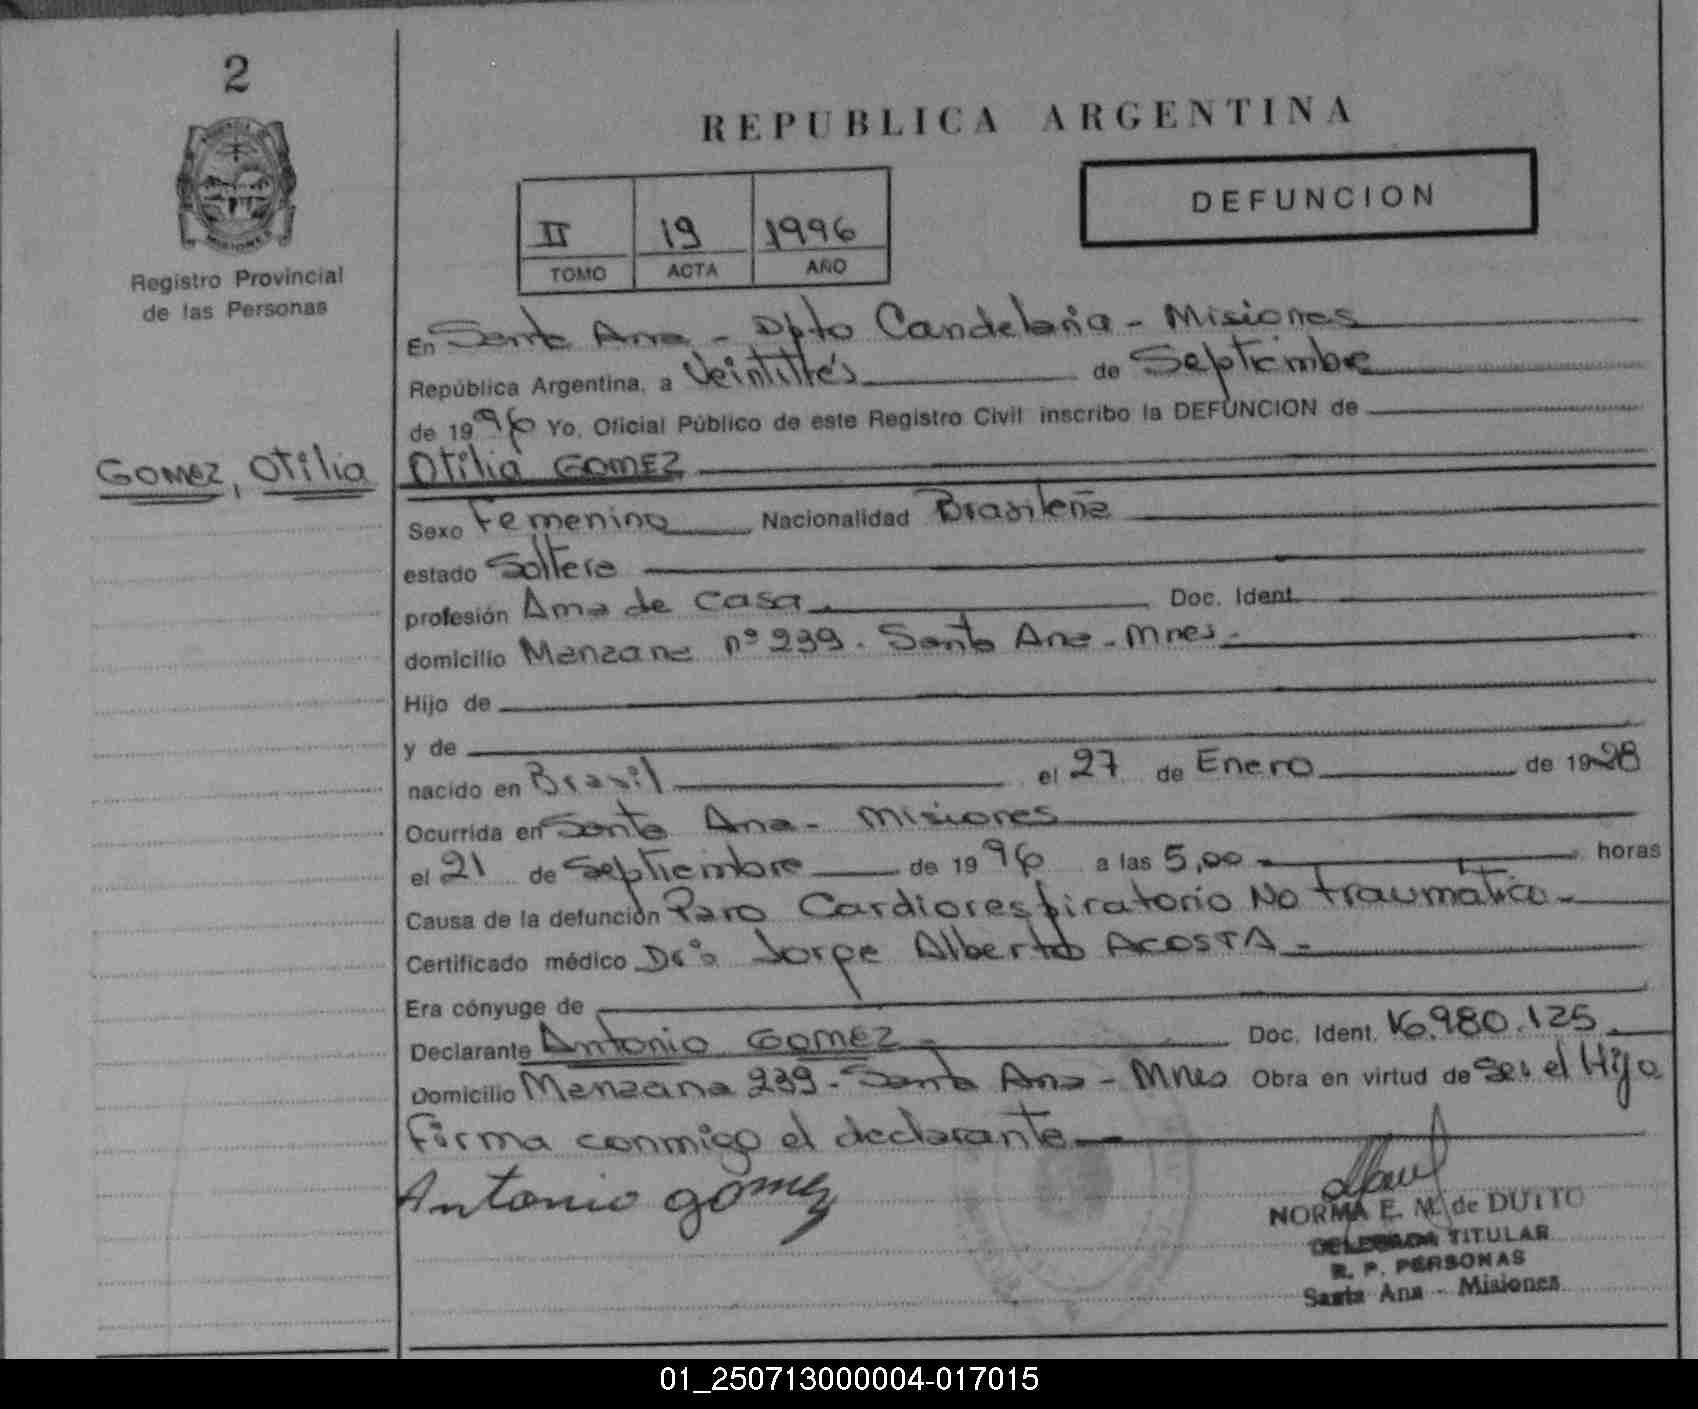 2
REPUBLICA ARGENTINA
DEFUNCION
II 19 1996
TOMO ACTA AÑO
Registro Provincial
de las Personas
En Santa Ana - Dpto Candelaria - Misiones
República Argentina, a Veintitrés de Septiembre
de 1996 Yo, Oficial Público de este Registro Civil inscribo la DEFUNCION de
GOMEZ, Otilia
Otilia GOMEZ
Sexo Femenino Nacionalidad Brasileña
estado Soltera
profesión Ama de Casa Doc. Ident.
domicilio Manzana nº 239. Santa Ana - Mnes.
Hijo de
y de
nacido en Brasil el 27 de Enero de 1928
Ocurrida en Santa Ana - Misiones
el 21 de Septiembre de 1996 a las 5,00 horas
Causa de la defunción Paro Cardiorespiratorio No Traumático
Certificado médico Dr: Jorge Alberto ACOSTA
Era cónyuge de
Declarante Antonio GOMEZ Doc. Ident. 16.980.125
Domicilio Manzana 239 - Santa Ana - Mnes Obra en virtud de Ser el Hijo
Firma conmigo el declarante
Antonio gomez
NORMA E. M. de DUTTO
DELEGADA TITULAR
R. P. PERSONAS
Santa Ana - Misiones
01_250713000004-017015